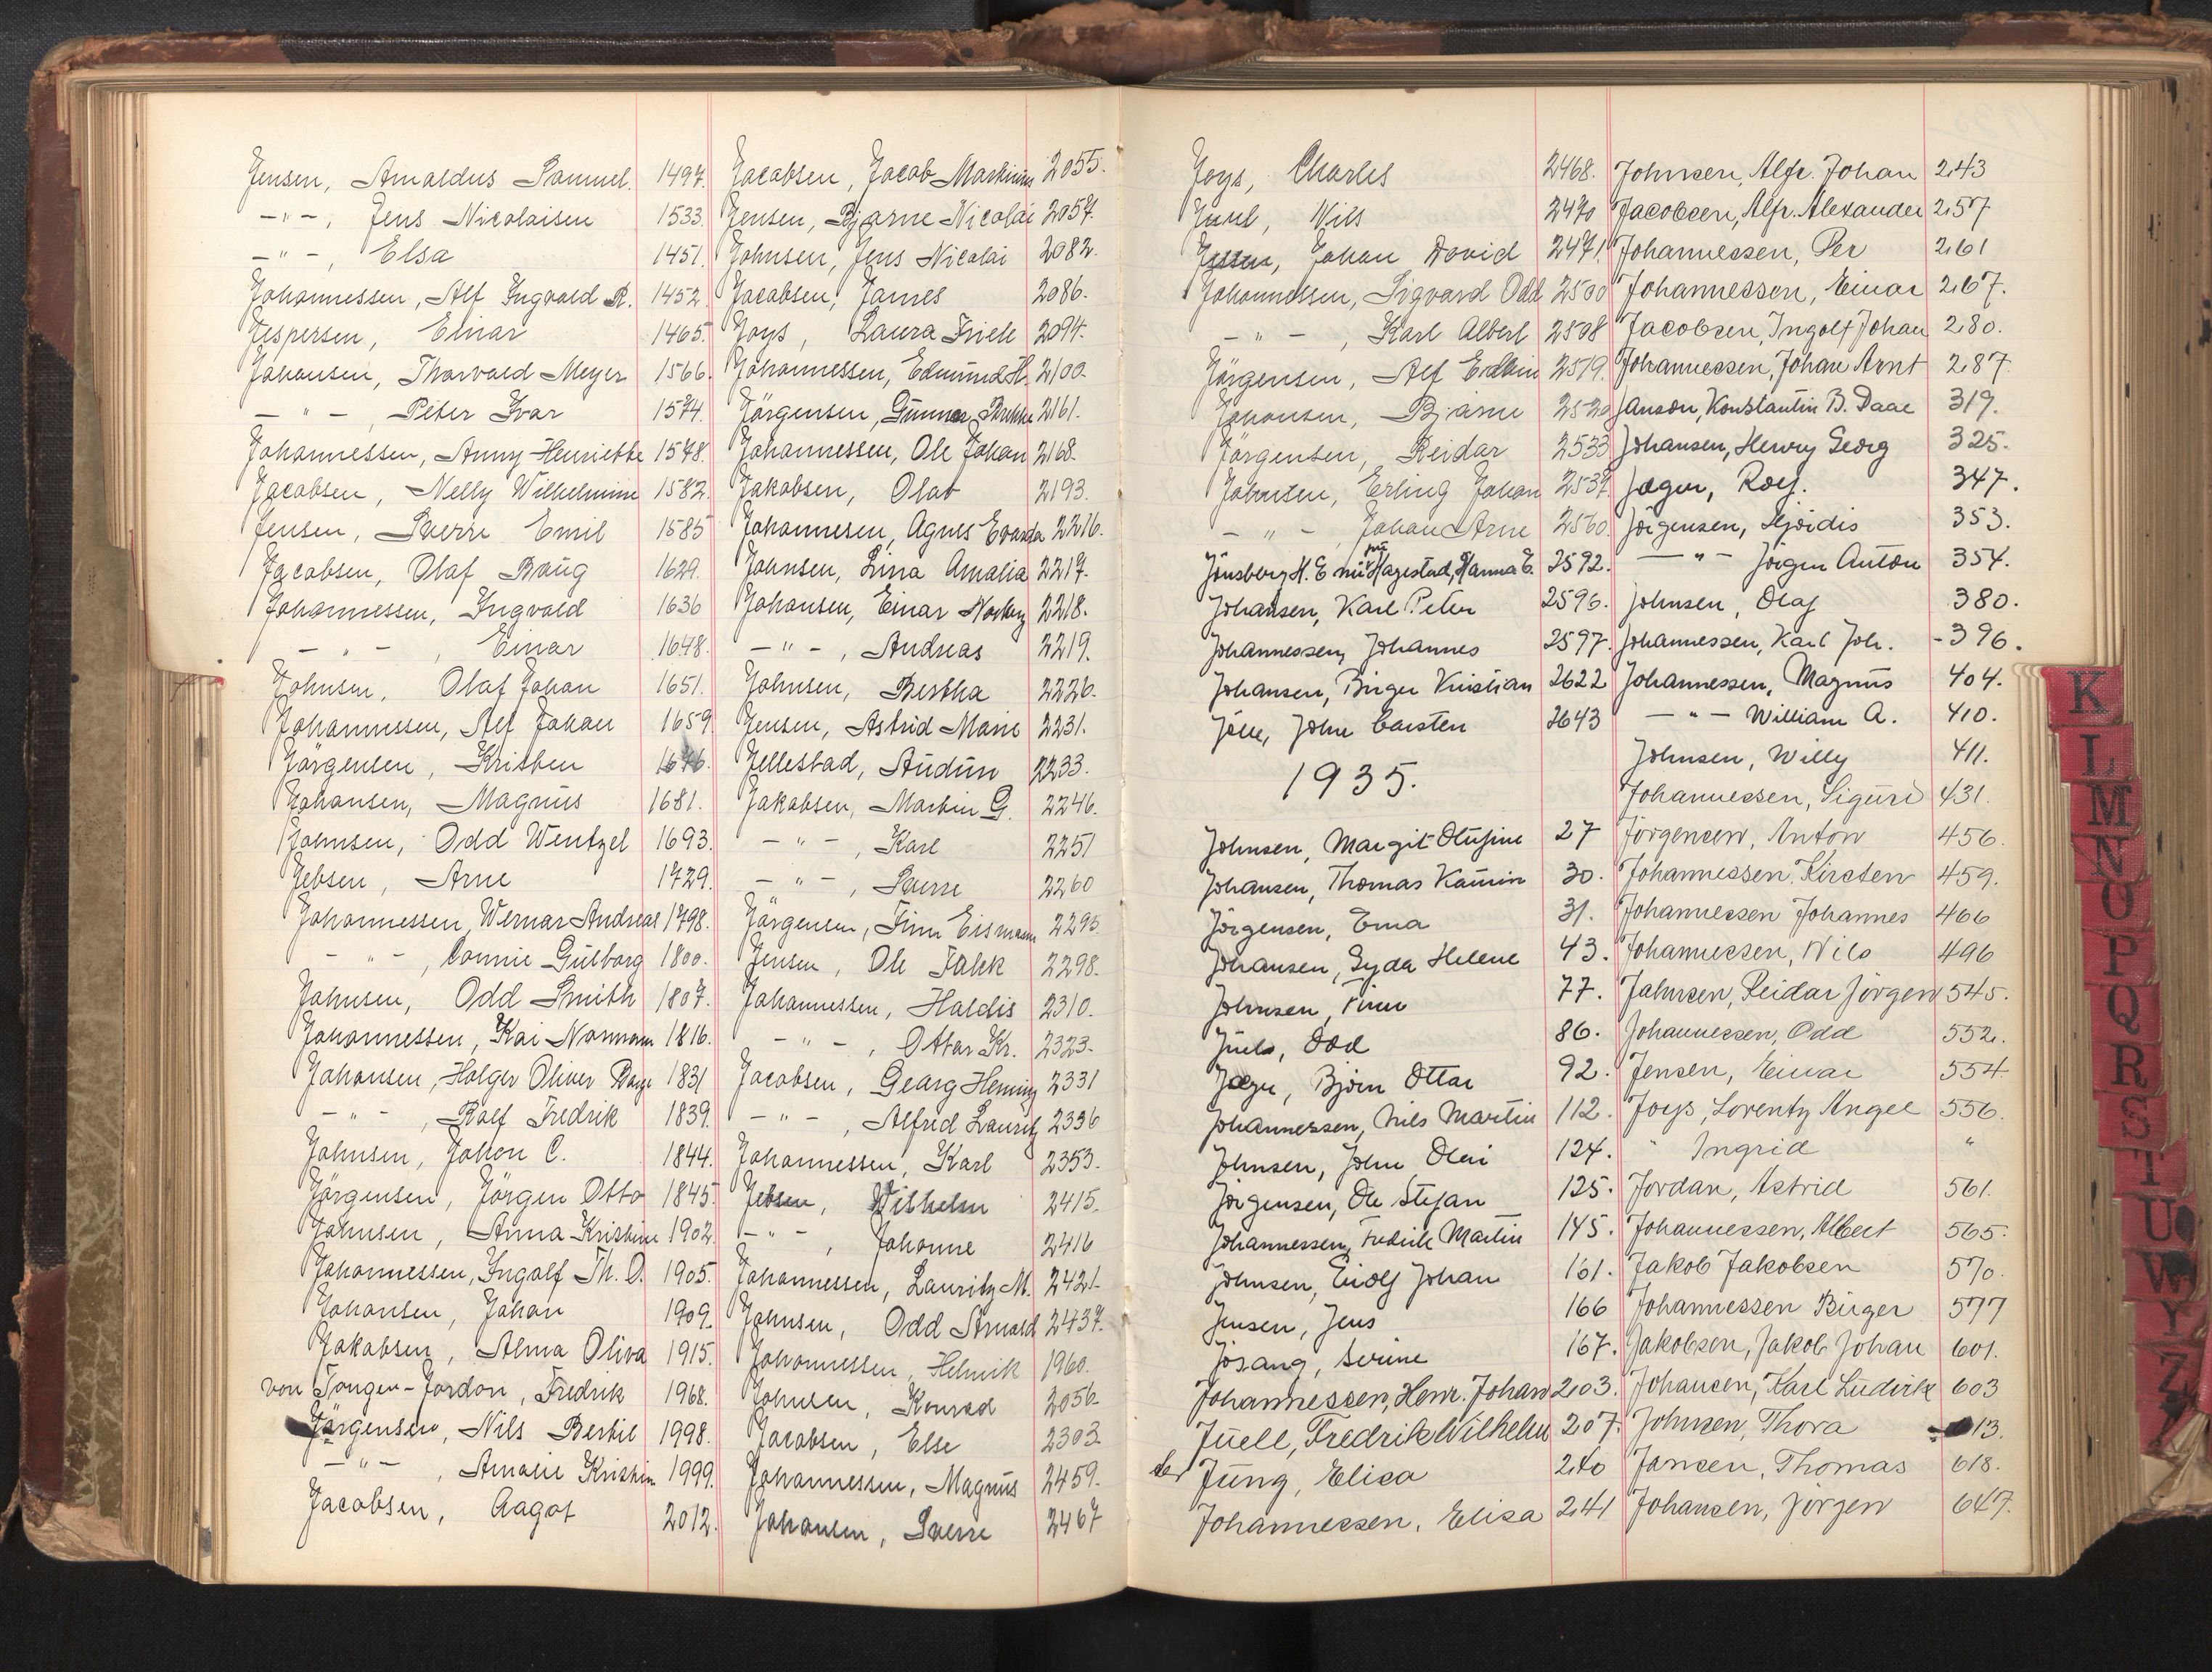 Jensen, Arnoldus Samuel. 1497.
—"—, Jens Nicolaisen 1533.
—"—, Elsa 1451.
Johannessen, Alf Ingvald R. 1452
Jespersen, Einar 1465.
Johansen, Thorvald Meyer 1566.
—"—, Peter Ivar 1574.
Johannessen, Anny Henriette 1578.
Jacobsen, Nelly Wilhelmine 1582.
Jensen, Sverre Emil 1585
Jacobsen, Olaf Baug 1629.
Johannessen, Ingvald 1636
—"—, Einar 1648.
Johnsen, Olaf Johan 1651.
Johannessen, Alf Johan 1659
Jörgensen, Kristen 1676.
Johansen, Magnus 1681.
Johnsen, Odd Wentzel 1693.
Jebsen, Arne 1729.
Johannessen, Werner Andreas 1798.
—"—, Connie Gülborg 1800.
Johnsen, Odd Smith 1807.
Johannessen, Kai Normann 1816.
Johansen, Holger Oliver 1831
—"—, Rolf Fredrik 1839.
Johnsen, Johan C. 1844.
Jörgensen, Jörgen Otto 1845.
Johnsen, Anna Kristine 1902.
Johannessen, Ingolf Th. O. 1905.
Johansen, Johan 1909.
Jakobsen, Alma Oliva 1915.
von Tangen-Jordan, Fredrik 1968.
Jörgensen, Nils Bertil 1998.
—"—, Amalie Kristin 1999.
Jacobsen, Aagot 2012.
Jacobsen, Jacob Martinius 2055.
Jensen, Bjarne Nicolai 2057.
Johnsen, Jens Nicolai 2082.
Jacobsen, James 2086.
Joys, Laura Friele 2094.
Johannessen, Edmund H. 2100.
Jörgensen, Gunnar 2161.
Johannessen, Ole Johan 2168.
Jakobsen, Olav 2193.
Johannesen, Agnes Evanda 2216.
Johnsen, Lina Amalia 2217.
Johansen, Einar Norberg 2218.
—"—, Andreas 2219.
Johnsen, Bertha 2226.
Jensen, Astrid Marie 2231.
Jellestad, Audun 2233.
Jakobsen, Martin G. 2246.
—"—, Karl 2251
—"—, Sverre 2260
Jörgensen, Finn Eismann 2295
Jensen, Ole Falck 2298.
Johannessen, Haldis 2310.
—"—, Ottar Kr. 2323.
Jacobsen, Georg Heming 2331
—"—, Alfred Lauritz 2336
Johannessen, Karl 2353.
Jebsen, Wilhelm 2415.
—"—, Johanne 2416
Johannessen, Lauritz M. 2421.
Johnsen, Odd Arnold 2437.
Johannessen, Helmik 1960.
Johnsen, Konrad 2056.
Jacobsen, Else 2303
Johannessen, Magnus 2459.
Johansen, Sverre 2467
Joys, Charles 2468.
Juul, Nils 2470
Johan David 2471
Johannessen, Sigvard Odd 2500
—"—, Karl Albert 2508
Jörgensen, Alf Edkin 2519.
Johansen, Bjarne 2520
Jörgensen, Reidar 2533
Johnsen, Erling Johan 2537.
—"—, Johan Arne 2560.
Jönsberg H. E nu frú Hagestad, Hanna E. 2592.
Johansen, Karl Peter 2596.
Johannessen, Johannes 2597.
Johansen, Birger Kristian 2622
Jölle, John Carsten 2643
1935.
Johnsen, Margit Olufine 27
Johansen, Thomas Kamin 30.
Jörgensen, Erna 31.
Johansen, Gyda Helene 43.
Johnsen, Finn 77.
Juels, Odd 86.
Jæger, Björn Ottar 92.
Johannessen, Nils Martin 112.
Johnsen, John Olai 124.
Jörgensen, Ole Stefan 125.
Johannessen, Fredrik Martin 145.
Johnsen, Eiolf Johan 161.
Jensen, Jens 166
Jösang, Serine 167.
Johannessen, Henr. Johan 203.
Juell, Fredrik Wilhelm 207.
Jung, Elisa 240
Johannessen, Elisa 241
Johnsen, Alfr. Johan 243
Jacobsen, Alfr. Alexander 257
Johannessen, Per 261
Johannessen, Einar 267.
Jacobsen, Ingolf Johan 280.
Johannessen, Johan Arnt 287.
Janson, Konstantin B. Daae 319.
Johansen, Henry Georg 325.
Jæger, Rolf. 347.
Jörgensen, Hjördis 353.
—"— Jörgen Anton 354.
Johnsen, Olaf 380.
Johannessen, Karl Joh. -396.
Johannessen, Magnus 404.
—"— William A. 410.
Johnsen, Willy 411.
Johannessen, Sigurd 431.
Jörgensen, Anton 456.
Johannessen, Kirsten 459.
Johannessen Johannes 466
Johannessen, Nils 496
Johnsen, Reidar Jörgen 545.
Johannessen, Odd 552.
Jensen, Einar 554
Joys, Lorentz Angel 556.
" Ingrid "
Jordan, Astrid 561.
Johannessen, Albert 565.
Jakob Jakobsen 570.
Johannessen Birger 577
Jakobsen, Jakob Johan 601.
Johansen, Karl Ludvik 603
Johnsen, Thora 613.
Jansen, Thomas 618.
Johansen, Jörgen 647.
K
L
M
N
O
P
Q
R
S
T
U
W
Y
Z